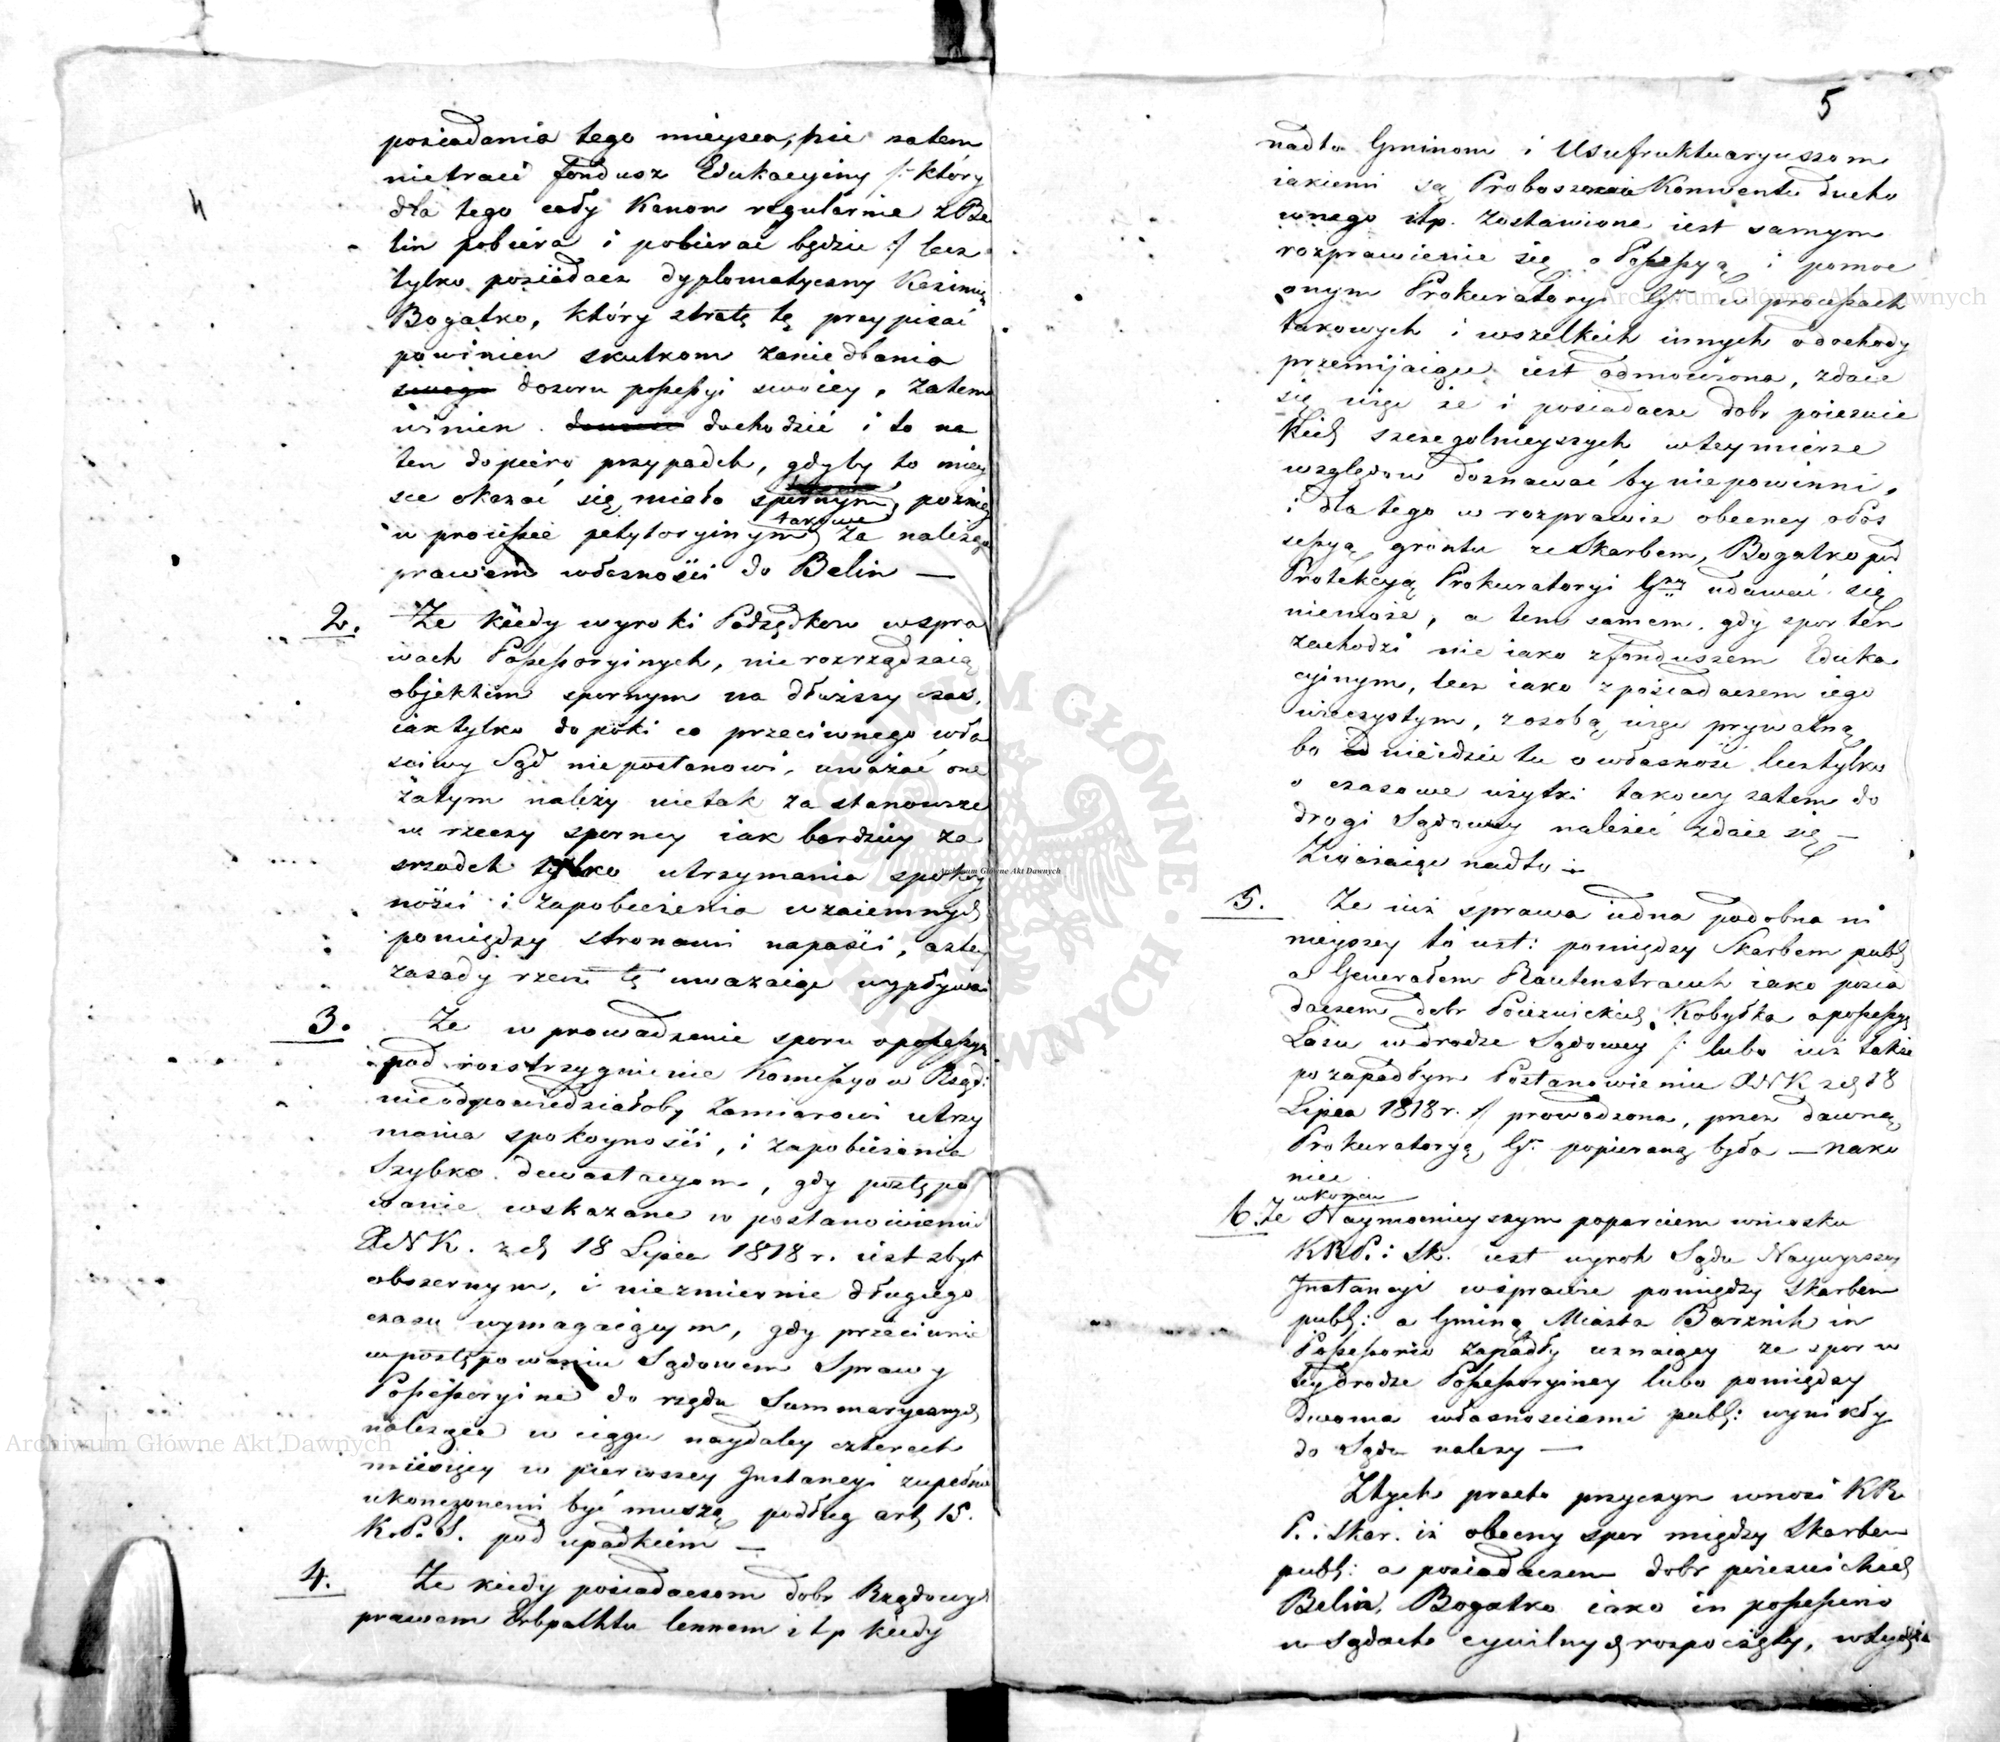 posiadania tego mieysca, nie zatem
nietraci fundusz Edukacyiny /: który
dla tego cały Kanon regularnie z Be
lin pobiera i pobierac będzie :/ lecz
tylko posiadacz dyplomatyczny Kazimirz
Bogatko, który stratę tę przypisać
powinien skutkom zaniedbania
swego dozoru possessyi swoiey, zatem
winien dochodzić i to na
ten dopiero przypadek, gdyby to miey
sce okazać się miało spornym, poźniey
takowe
w processie petytoryinym za należące
prawem własności do Belin —
2. Że kiedy wyroki Podsędków w spra
wach Possessoryinych, nie rozrządzaią
objektem spornym na dłuższy czas,
iak tylko dopóki co przeciwnego wła
sciwy Sąd nie postanowi, uważać one
zatym należy nie tak za stanowcze
w rzeczy sporney iak bardziey za
srzodek tylko utrzymania spokoy
ności i zapobieżenia wzaiemnych
pomiędzy stronami napaści, a z tey
zasady rzecz tę uważaiąc wypływa
3. Że w prowadzenie sporu o possessyą
pod rozstrzygnienie Kommissyow Rząd:
nieodpowiedziałoby zamiarowi utrzy
mania spokoyności, i zapobieżenia
Szybko dewastacyom, gdy postępo
wanie wskazane w postanowieniu
XNK. z d. 18 Lipca 1818 r. iest zbyt
obszernym, i niezmiernie długiego
czasu wymagaiącym, gdy przeciwnie
w postępowaniu Sądowem Sprawy
Possessoryine do rzędu Summarycznych
należące w ciągu naydaley czterech
miesięcy w pierwszey Instancyi zupełnie
ukonczonemi być muszą podług art. 15.
K.P.S. pod upadkiem —
4. Że kiedy posiadaczom dobr Rządowych
prawem Erbpachtu lennem itp kiedy
5
nadto Gminom i Usufruktuaryuszom
iakiemi są Proboszcz Konwentu ducho
wnego itp. zostawione iest samym
rozprawienie się o Possessyą i pomoc
onym Prokuratoryi Gn. w processach
takowych i wszelkich innych o dochody
przemijaiące iest odmowiona, zdaie
się więc że i posiadacze dobr poiezuic
kich szczegolnieyszych w tey mierze
względow doznawać by nie powinni,
i dla tego w rozprawie obecney o pos
sessyą gruntu ze Skarbem, Bogatko pod
Protekcyą Prokuratoryi Gney udawać się
niemoże, a tem samem, gdy spor ten
zachodzi nie iako z funduszem Eduka
cyinym, lecz iako z posiadaczem iego
wieczystym, z osobą więc prywatną
bo nieidzie tu o własność lecz tylko
o czasowe użytki takowy zatem do
drogi Sądowey należeć zdaie się —
Zważaiąc nadto —
5. Że iuż sprawa iedna podobna ni
nieyszey to iest: pomiędzy Skarbem publ:
a Generałem Rautenstrauch iako posia
daczem dobr Poiezuickich Kobyłka o possessyą
Lasu w drodze Sądowey /: lubo iuż także
po zapadłym Postanowieniu XNK z d. 18
Lipca 1818 r. :/ prowadzona, przez dawną
Prokuratoryą Gn. popieraną była — nako
niec
w koncu
6. Że Naymocnieyszym poparciem wniosku
KRP. i Sk. iest wyrok Sądu Naywyższey
Instancyi w sprawie pomiędzy Skarbem
publ: a Gminą Miasta Barznik in
Possessorio zapadły uznaiący że spor w
tey drodze Possessoryiney lubo pomiędzy
dwoma własnosciami publ: wynikły
do Sądu należy —
Z tych przeto przyczyn wnosi KR
P. i Skar. iż obecny spor między Skarbem
publ: a posiadaczem dobr poiezuickich
Belin, Bogatko iako in possessorio
w Sądach cywilnych rozpoczęty, w tychże
Archiwum Główne Akt Dawnych
Archiwum Główne Akt Dawnych
Archiwum Główne Akt Dawnych
ARCHIWUM GŁÓWNE AKT DAWNYCH